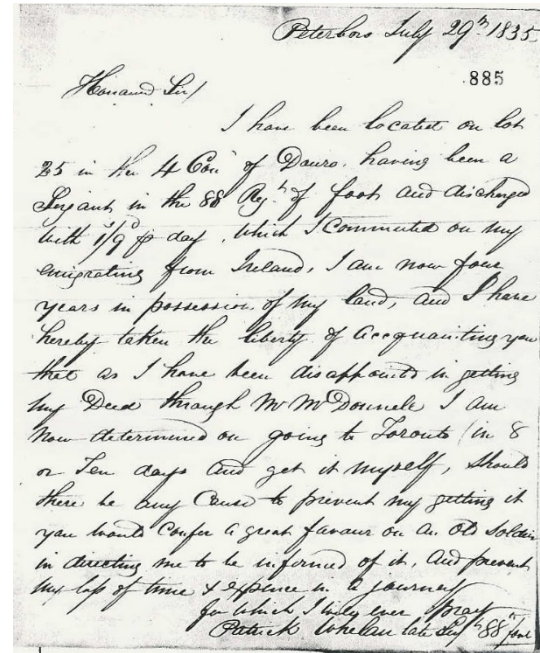 Peterboro July 29th 1835
885
Honored Sir/
I have been located on lot
25 in the 4 Con of Douro, having been a
Serjant in the 88 Regt of foot and discharged
with 1/9 p day, which I commuted on my
emigrating from Ireland, I am now four
years in possession of my land, and I have
hereby taken the liberty of accquainting you
that as I have been disappointed in getting
my Deed through Mr McDonnele I am
now determined on going to Toronto (in 8
or Ten days and get it myself, should
there be any Cause to prevent my getting it
you would confer a great favour on an old Soldier
in directing me to be informed of it, And prevent
my loss of time & expence in a journey
for which I will ever pray
Patrick Whelan late Serjt 88th foot